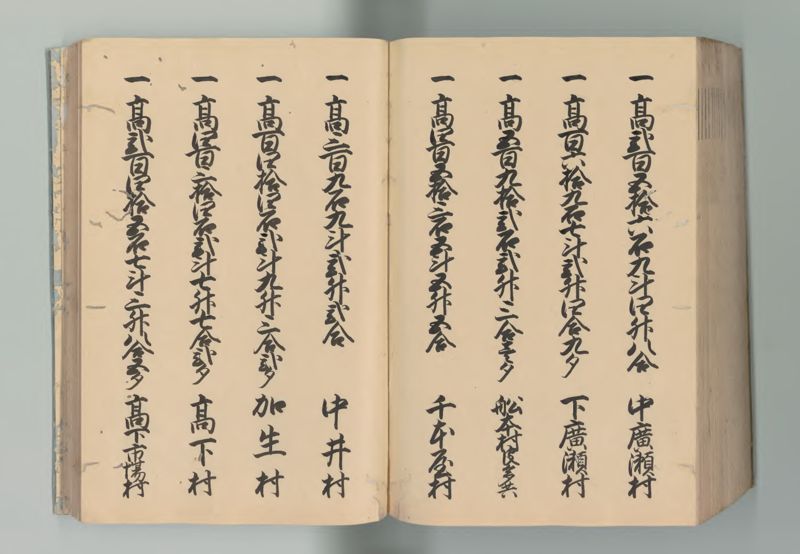 一 高弐百五拾六石九斗四升八合 中廣瀬村
一 高百六拾九石七斗弐升四合九夕 下廣瀬村
一 高五百九拾弐石弐升三合壱夕 舩木村
一 高四百五拾三石五斗五升五合 千本屋村
一 高三百九石九斗弐升弐合 中井村
一 高百四拾四石弐斗九升三合弐夕 加生村
一 高四百三拾四石弐斗七升七合弐夕 高下村
一 高弐百四拾五石七斗三升八合五夕 高下市場村